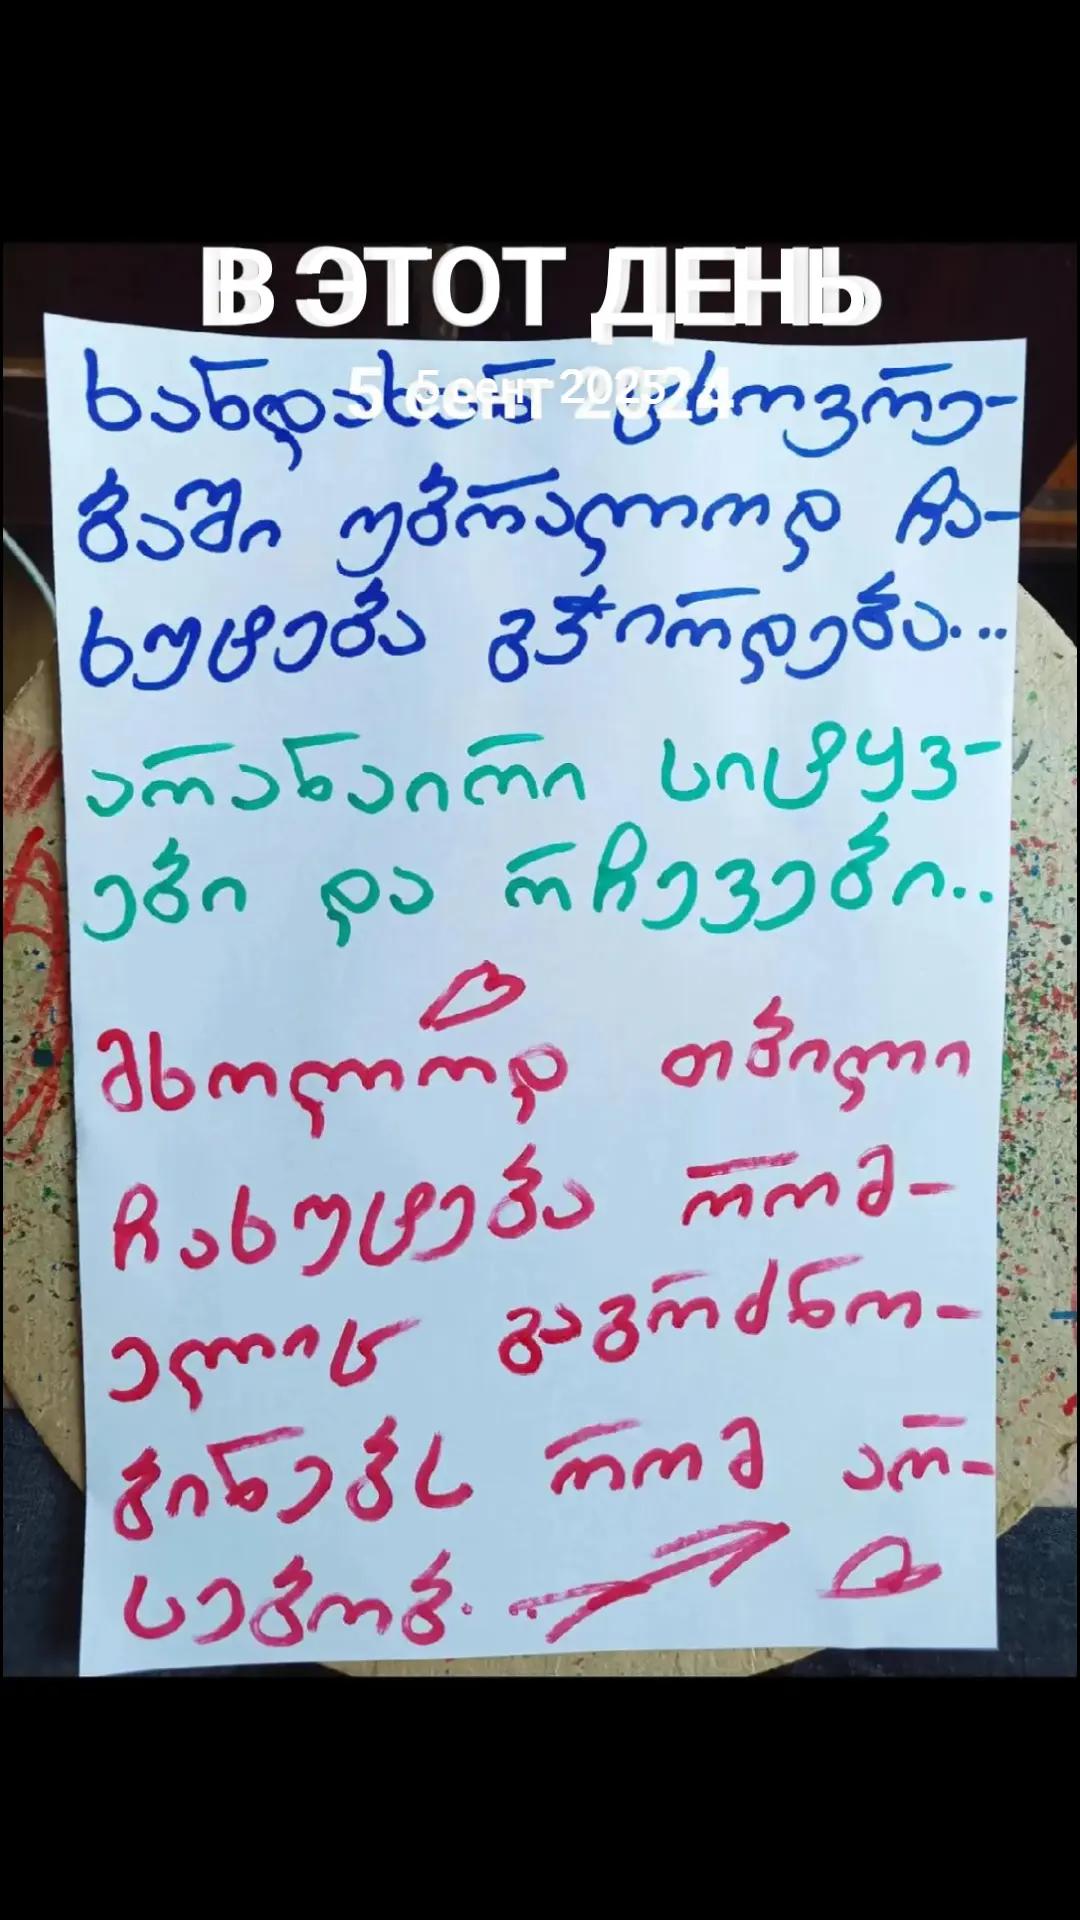 В ЭТОТ ДЕНЬ
5 сент 2024
5 сент 2025
ხანდახან ცხოვრე-
ბაში უბრალოდ ჩა-
ხუტება გჭირდება...
არანაირი სიტყვ-
ები და რჩევები..
მხოლოდ თბილი
ჩახუტება რომ-
ელიც გაგრძნო-
ბინებს რომ არ-
სებობ...